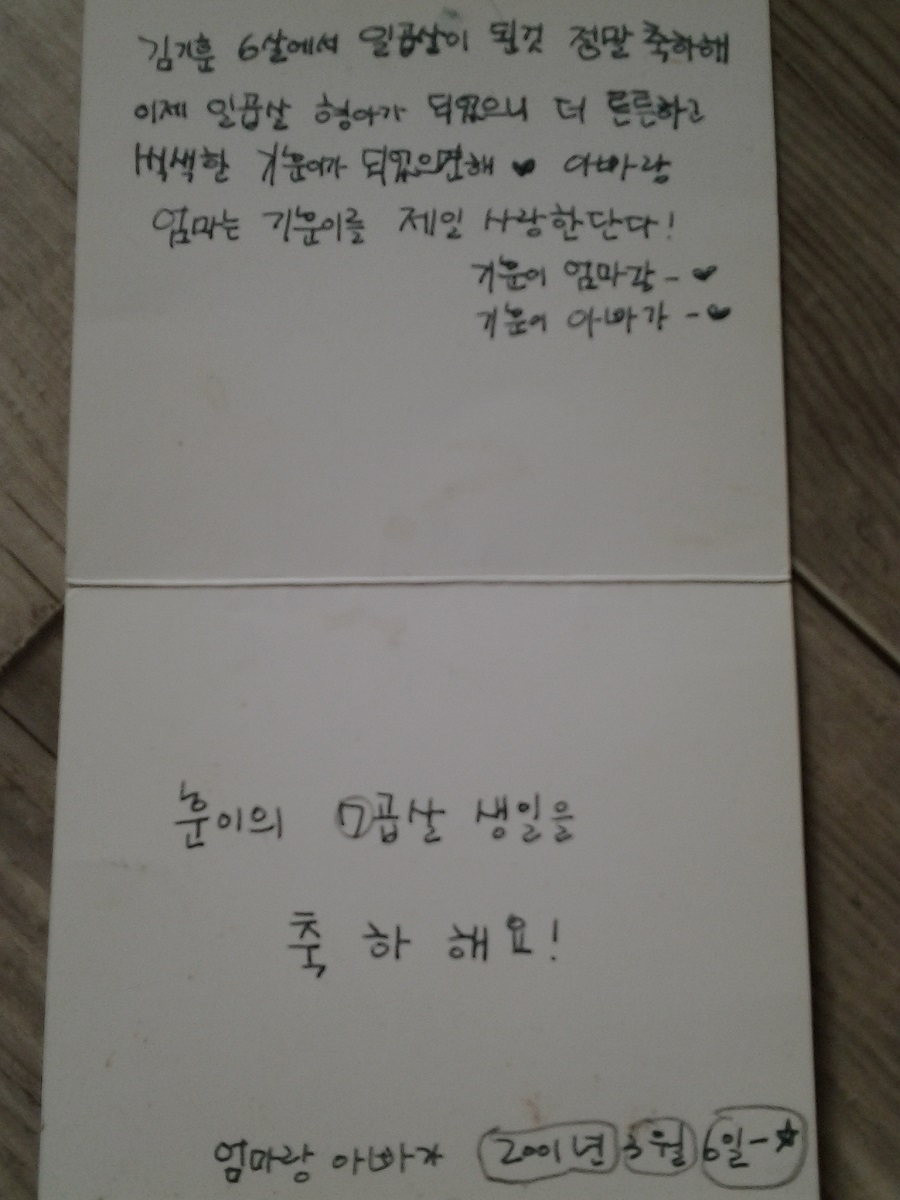 김기훈 6살에서 일곱살이 된것 정말 축하해
이제 일곱살 형아가 되었으니 더 튼튼하고
씩씩한 기훈이가 되었으면해 ♥ 아빠랑
엄마는 기훈이를 제일 사랑한단다!
기훈이 엄마가 - ♥
기훈이 아빠가 - ♥
훈이의 7곱살 생일을
축하해요!
엄마랑 아빠가 2001년 3월 6일-★